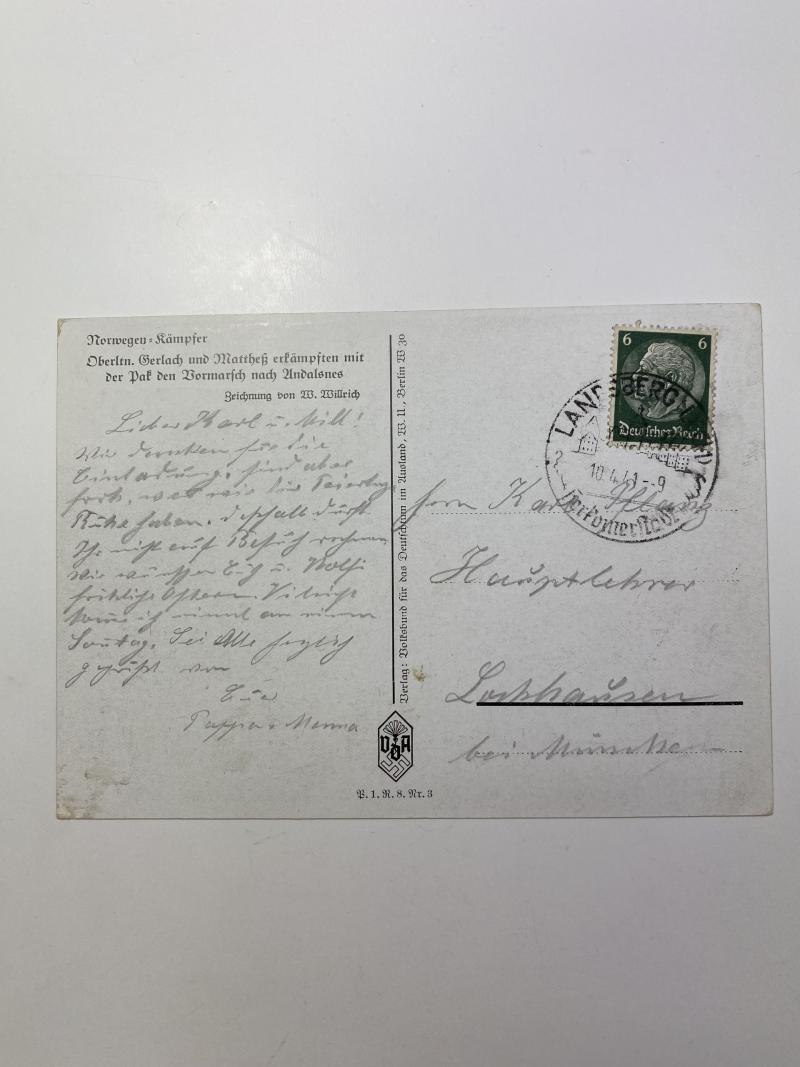 Norwegen-Kämpfer
Oberltn. Gerlach und Mattheß erkämpften mit
der Pak den Vormarsch nach Andalsnes
Zeichnung von W. Willrich
Lieber Karl u. Mill!
Wir danken für die
Einladung, sind aber
froh, wen wir die Feiertage
Ruhe haben, deshalb dürft
Ihr nicht auf Besuch rechnen
Wir wünschen Euch u. Wolfi
fröhliche Ostern. Vileicht
komme ich einmal an einem
Sonntag. Sei Alle herzlich
gegrüßt von
Eue
Pappa u. Mamma
Verlag: Volksbund für das Deutschtum im Ausland, W. U., Berlin W 30
VDA
P. 1. R. 8. Nr. 3
6 6
Deutsches Reich
LANDSBERG
10.4.41.-9
Herkomerstadt
Herrn Karl Pflanz
Hauptlehrer
Lochhausen
bei München